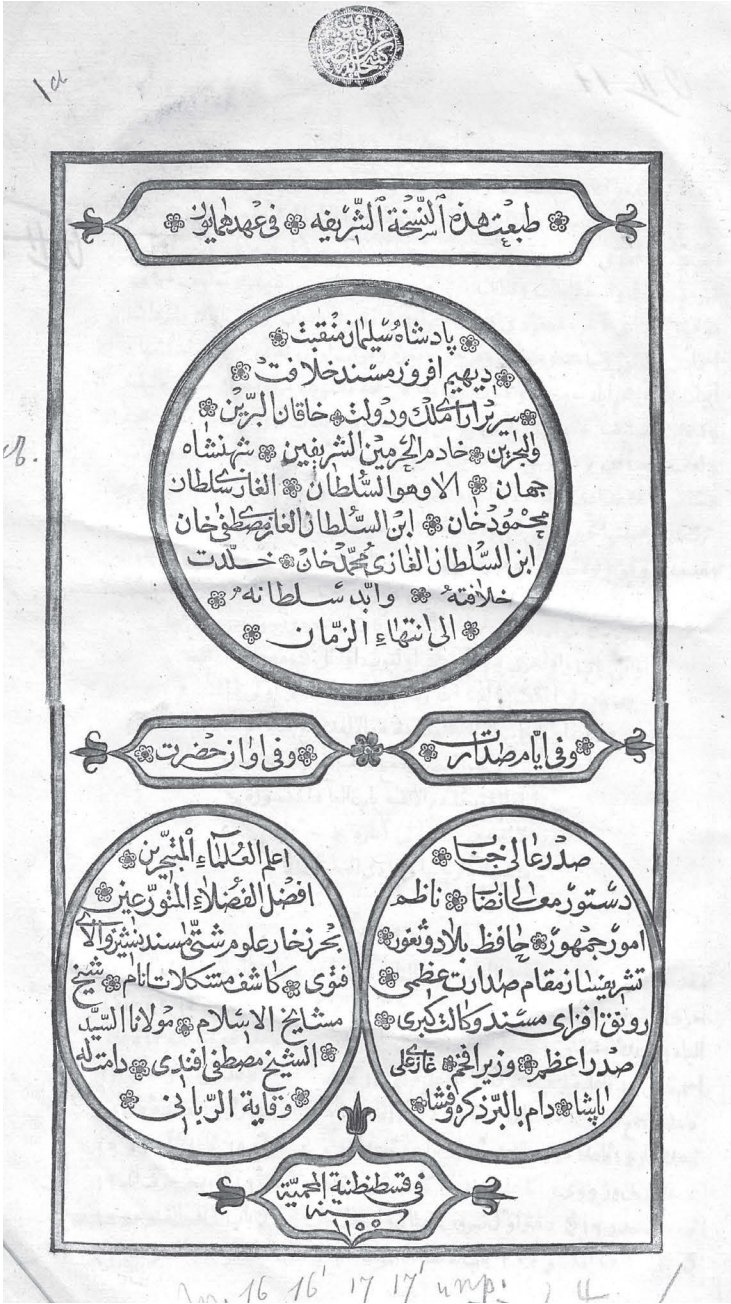 1a
طبعت هذه النسخة الشريفه ❀ فى عهد همايون
پادشاه سليمان منقبت
ديهيم افروز مسند خلافت
سرير آراى ملك ودولت ❀ خاقان البرّين
والبحرين ❀ خادم الحرمين الشريفين ❀ شهنشاه
جهان ❀ الا وهو السّلطان ❀ الغازى سلطان
محمود خان ❀ ابن السّلطان الغازى مصطفى خان
ابن السّلطان الغازى محمّد خان ❀ خلّدت
خلافته ❀ وابّد سلطانه
الى انتهاء الزّمان
وفى ايّام صدارت
صدر عالى جناب
دستور معالى انصاب ❀ ناظم
امور جمهور ❀ حافظ بلاد وثغور
تشريفساز مقام صدارت عظمى
رونق افزاى مسند وكالت كبرى
صدر اعظم ❀ وزير افخم ❀ غازى على
پاشا ❀ دام بالبرّ ذكره وفشا
وفى اوان حضرت
اعلم العلماء المتبحّرين
افضل الفضلاء المتورّعين
بحر زخار علوم شتّى ❀ مسند نشين والاى
فتوى ❀ كاشف مشكلات انام ❀ شيخ
مشايخ الاسلام ❀ مولانا السيّد
الشيخ مصطفى افندى ❀ دامت له
وقاية الربّانى
فى قسطنطنية المحميّة
سنه
١١٥٥
16 16' 17 17'